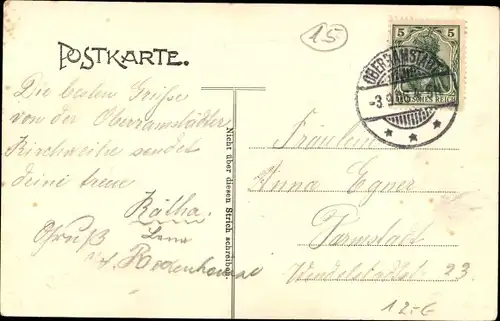 15
5 5
DEUTSCHES REICH
OBER-RAMSTADT
-3 9
POSTKARTE.
Die besten Grüße
von der Oberramstädter
Kirchweihe sendet
deine treue
Kätha.
Gruß
Nicht über diesen Strich schreiben
Fräulein
Anna Egner
Darmstadt
Wendelstadtstr. 23.
12.-€